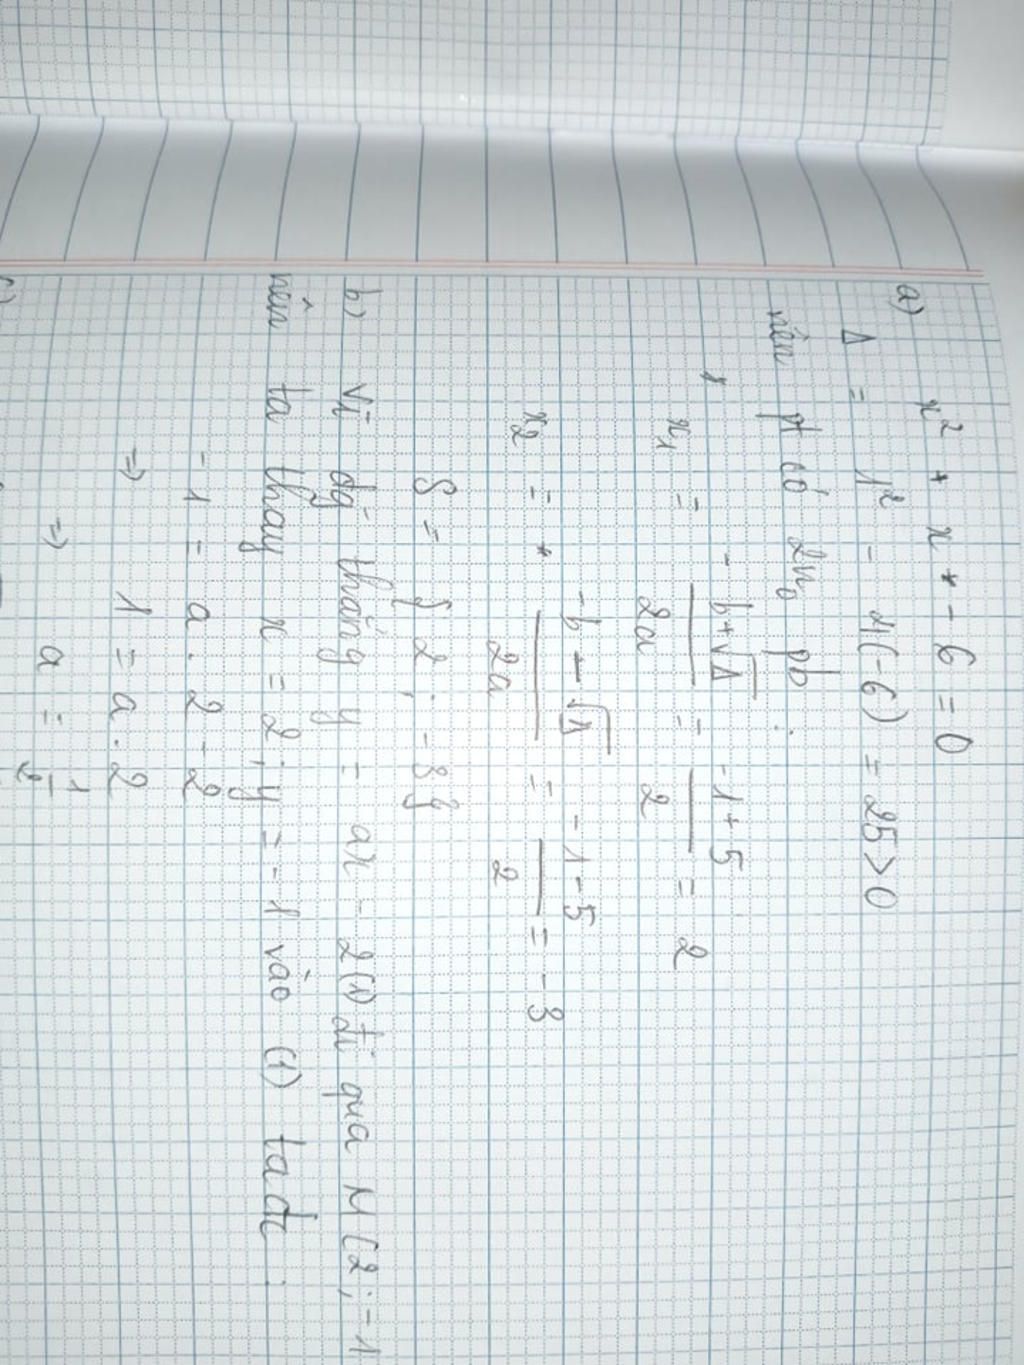 a) x² + x - 6 = 0
Δ = 1² - 4(-6) = 25 > 0
nên pt có 2n₀ pb :
x₁ = -b+√Δ / 2a = -1+5 / 2 = 2
x₂ = -b-√Δ / 2a = -1-5 / 2 = -3
S = { 2 ; -3}
b) Vì đg thẳng y = ax - 2 (1) đi qua M(2 ; -1
nên ta thay x = 2 ; y = -1 vào (1) ta đc :
-1 = a . 2 - 2
⇒ 1 = a . 2
⇒ a = 1/2